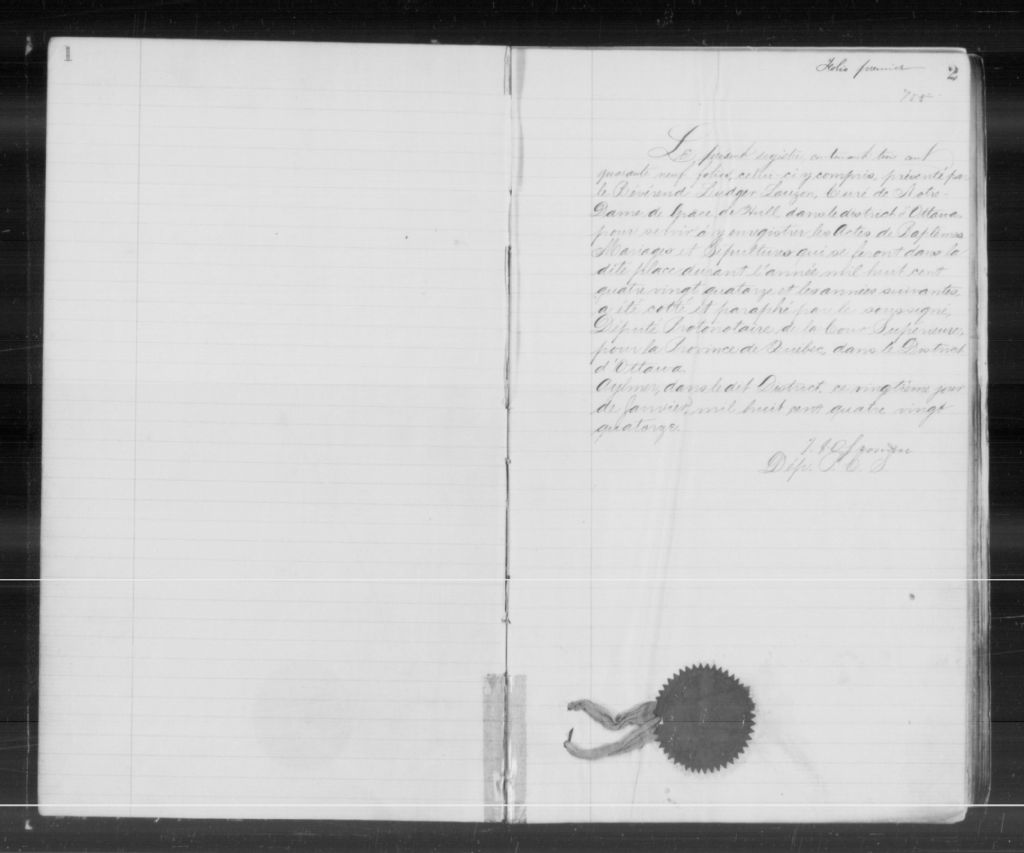 1
Folio premier
2
Le présent registre, contenant cent
quarante neuf folios, celui-ci y compris, présenté par
le Révérend Ludger Lauzon, Curé de Notre-
Dame de Grace, de Hull, dans le district d'Ottawa
pour servir à y enregistrer les Actes de Baptêmes
Mariages et Sépultures qui se feront dans la
dite place durant l'année mil huit cent
quatre vingt quatorze et les années suivantes,
a été cotté et paraphé par le soussigné,
Député Protonotaire de la Cour Supérieure,
pour la Province de Québec, dans le District
d'Ottawa.
Aylmer, dans le dit District, ce vingtième jour
de Janvier, mil huit cent quatre vingt
quatorze.
Dép. P. C. S